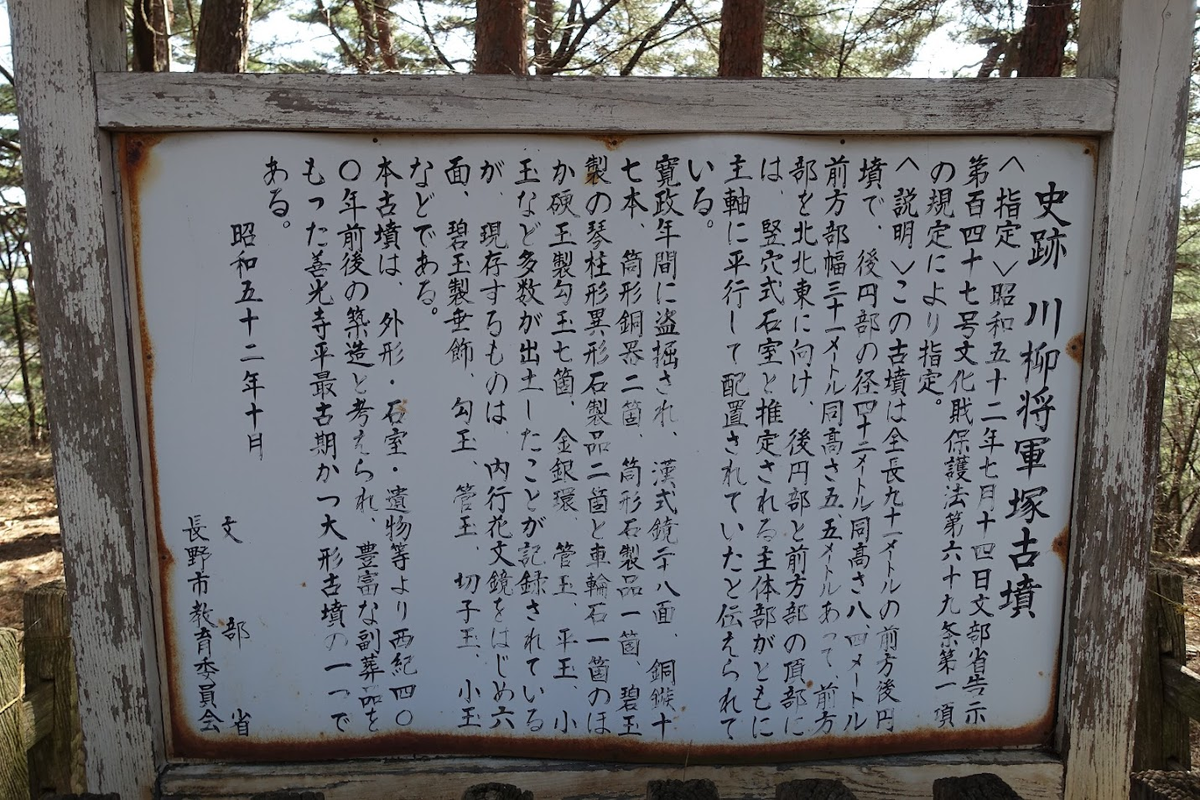 史跡 川柳将軍塚古墳
〈指定〉昭和五十二年七月十四日文部省告示
第百四十七号文化財保護法第六十九条第一項
の規定により指定。
〈説明〉この古墳は全長九十一メートルの前方後円
墳で、後円部の径四十二メートル同高さ八、四メートル
前方部幅三十一メートル同高さ五、五メートルあって前方
部を北北東に向け、後円部と前方部の頂部に
は、竪穴式石室と推定される主体部がともに
主軸に平行して配置されていたと伝えられて
いる。
寛政年間に盗掘され、漢式鏡二十八面、銅鏃十
七本、筒形銅器二箇、筒形石製品一箇、碧玉
製の琴柱形異形石製品二箇と車輪石一箇のほ
か硬玉製勾玉七箇、金銀環、管玉、平玉、小
玉など多数が出土したことが記録されている
が、現存するものは、内行花文鏡をはじめ六
面、碧玉製垂飾、勾玉、管玉、切子玉、小玉
などである。
本古墳は、外形・石室・遺物等より西紀四〇
〇年前後の築造と考えられ、豊富な副葬品を
もった善光寺平最古期かつ大形古墳の一つで
ある。
昭和五十二年十月
文部省
長野市教育委員会